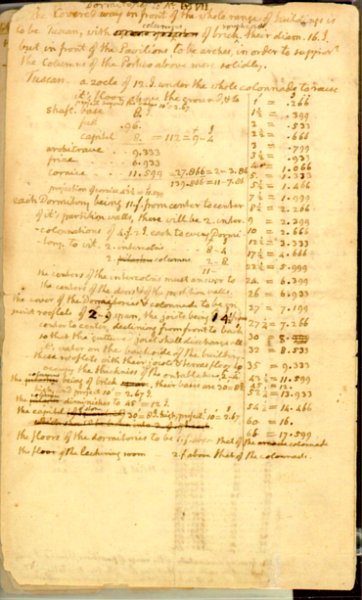 the Covered way in front of the whole range of buildings is
to be Tuscan, with columns of brick roughcast, their diam. 16.I.
but in front of the Pavilions to be arches, in order to support
the Columns of the Portico above more solidly.
Tuscan. a zocle of 12.I. under the whole colonnade to raise
it's floor above the ground
shaft. base 8.
96.
capitel 8. = 112 = 9-4
architrave 9.333
frise 6.933
cornice 11.599 = 27.866 = 2-3.86
139.866 = 11-7.86
each Dormitory being 11.f. from center to center
of it's partition walls, there will be 2 inter
-colonnations of 4.f.2.I. each to every Dormi
-tory. to wit. 2. intercolns 8-4
2. columns 2-8
11-
the centers of the intercolns must answer to
the centers of the doors & of the partition walls.
the cover of the Dormitories & colonnade to be in
rooflets of 2-9 span, the joists being
center to center, declining from front to back
so that the gutter joist shall discharge all
it's water on the back side of the building.
these rooflets with their joists & terras floor to
occupy the thickness of the entablature
the being of brick their bases are 30=8
project 10 = 2.67 I
the diminishes to 45 = 12.I.
the capitel is 30 = 8. high, project. 10 = 2.67
the floors of the dormitories to be 1.f. above that of the colonnade
the floor of the lecturing room 2.f. above that of the colonnade.
1 = .266
1½ = .399
2 = .533
2½ = .666
3 = .799
3½ = .931
4 = 1.066
5 = 1.333
5½ = 1.466
7½ = 1.999
8½ = 2.266
9 = 2.399
10 = 2.666
12½ = 3.333
17½ = 4.666
22½ = 5.999
24 = 6.399
26 = 6.933
27 = 7.199
27½ = 7.266
30 = 8.
32 = 8.533
35 = 9.333
45 = 12.
52½ = 13.933
54½ = 14.466
60 = 16.
66 = 17.599